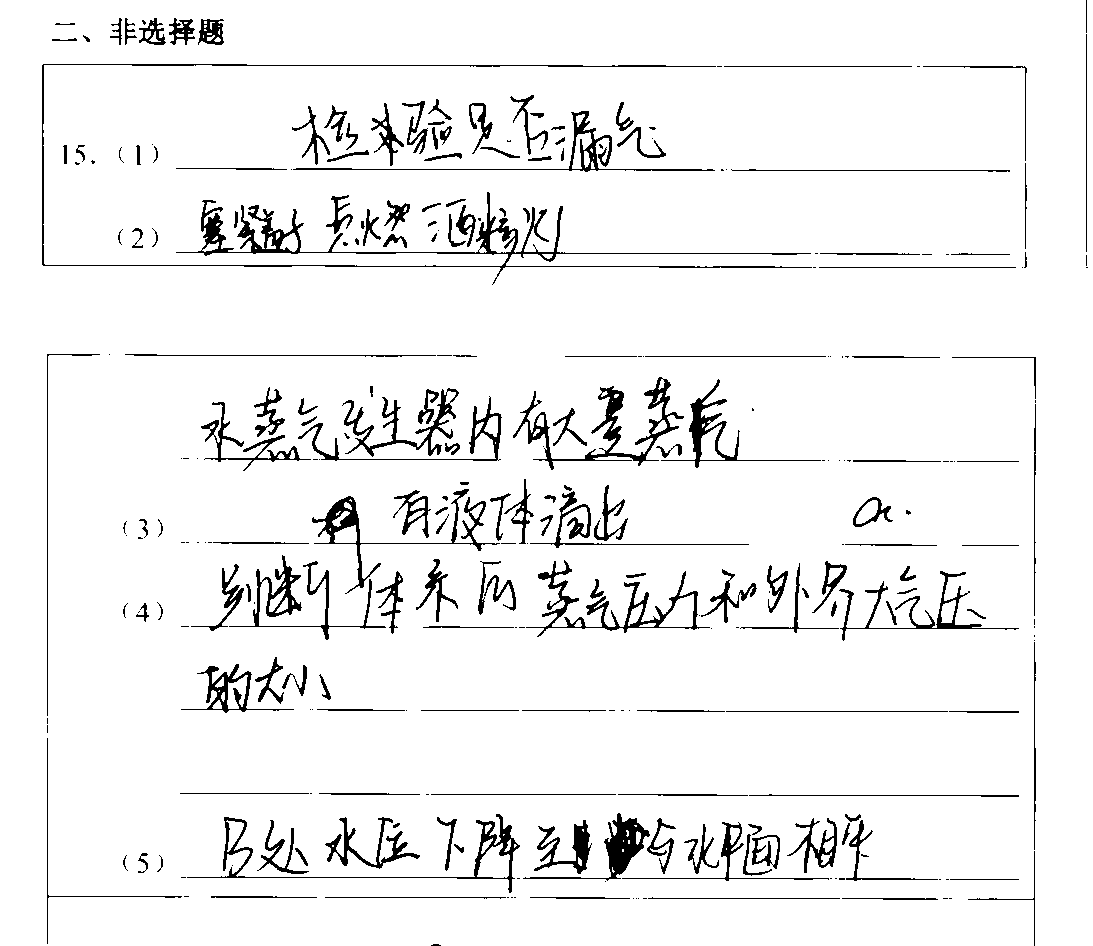 二、非选择题
15.(1) 检验是否漏气
(2) 塞紧 点燃酒精灯
水蒸气发生器内有大量蒸气
(3) 有液体滴出 a.
(4) 判断体系内蒸气压力和外界大气压
的大小
(5) B处水位下降至与水平面相平